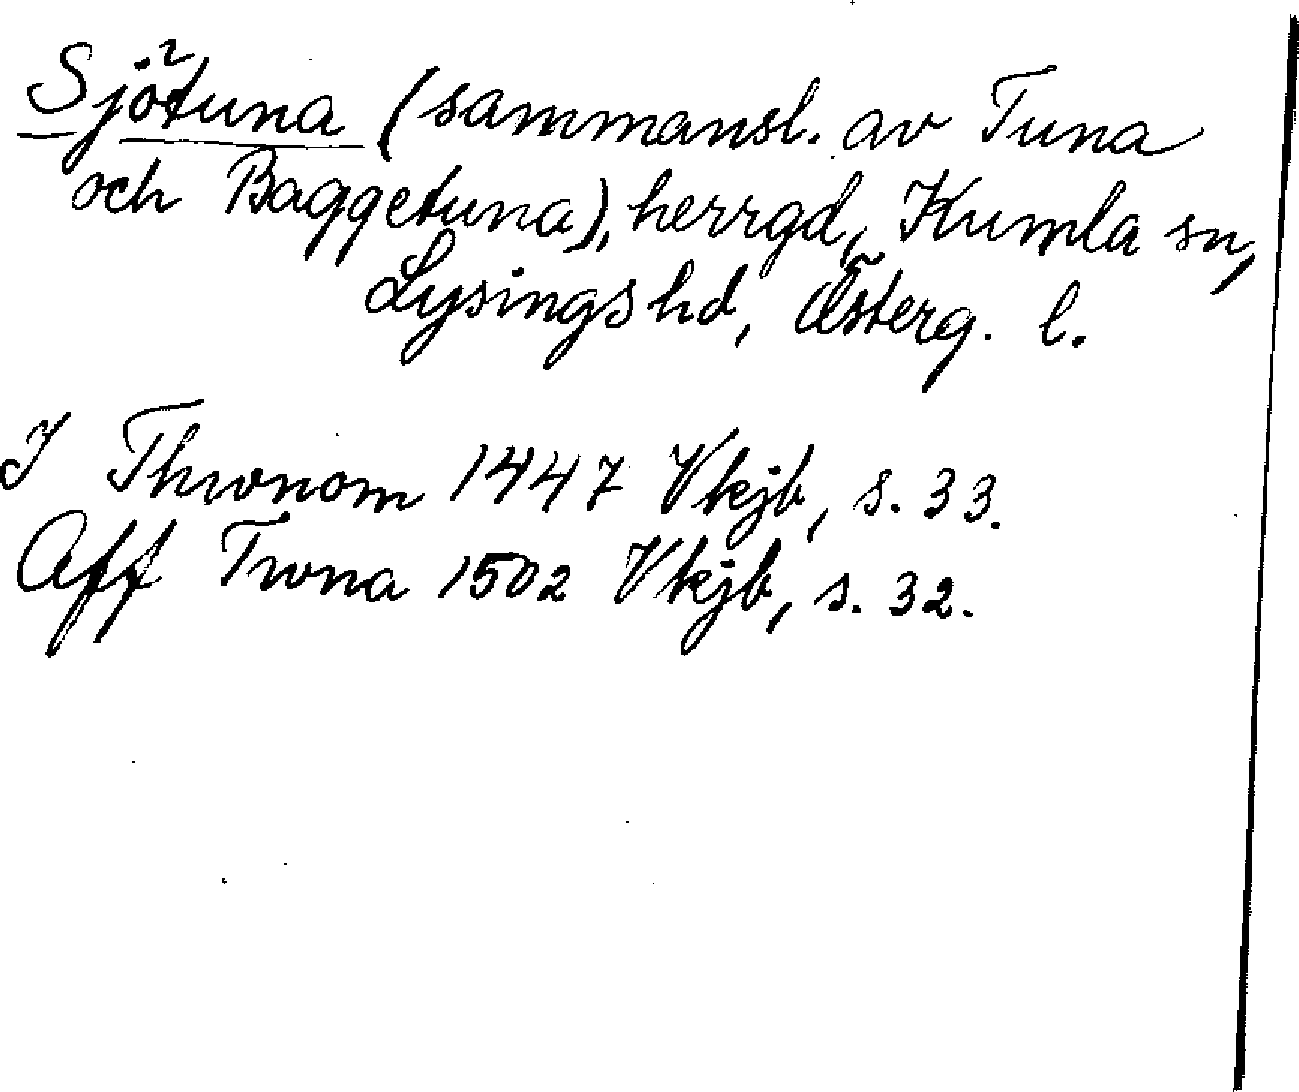 Sjötuna (sammansl. av Tuna
och Baggetuna), herrgd, Kumla sn,
Lysings hd, Österg. l.
I Thwnom 1447 Vkjb, s. 33.
Aff Twna 1502 Vkjb, s. 32.